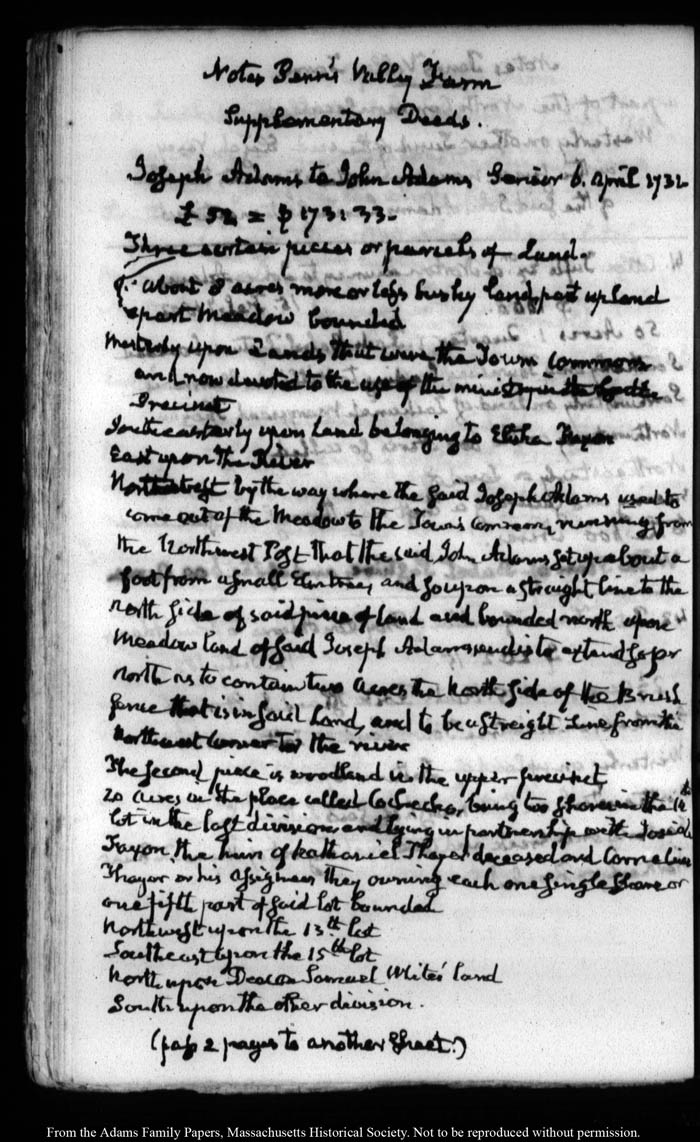 Notes Penn's Valley Farm
Supplementary Deeds.
Joseph Adams to John Adams Senior 6. April 1732
£ 52 = $ 173:33
Three certain pieces or parcels of Land.
about 8 acres more or less bushy land, part upland
part Meadow bounded
Westerly upon Lands that were the Town Commons
and now devoted to the use of the ministry in the
Precinct
Southeasterly upon Land belonging to Elisha Faxon
East upon the River
by the way where the said Joseph Adams used to
come out of the Meadow to the Town common, running from
the Northwest Post that the said John Adams set up about a
foot from a small Elm tree, and so upon a straight line to the
north side of said piece of land and bounded north upon
Meadow land of said Joseph Adams and is to extend so far
north as to contain two Acres the North side of the Brush
fence that is in said Land, and to be a Streight Line from the
Northwest Corner to the river
The Second piece is woodland in the upper precinct
20 acres in the place called Cochecho, being two shares in the 14th
lot in the last division and lying in partnership with Josiah
Faxon, the heirs of Nathaniel Thayer deceased and Cornelius
Thayer or his assignees they owning each one single Share or
one fifth part of said lot bounded
Northwest upon the 13th lot
Southeast upon the 15th lot
North upon Deacon Samuel White's land
South upon the other division.
(pass 2 pages to another Sheet.)
From the Adams Family Papers, Massachusetts Historical Society. Not to be reproduced without permission.